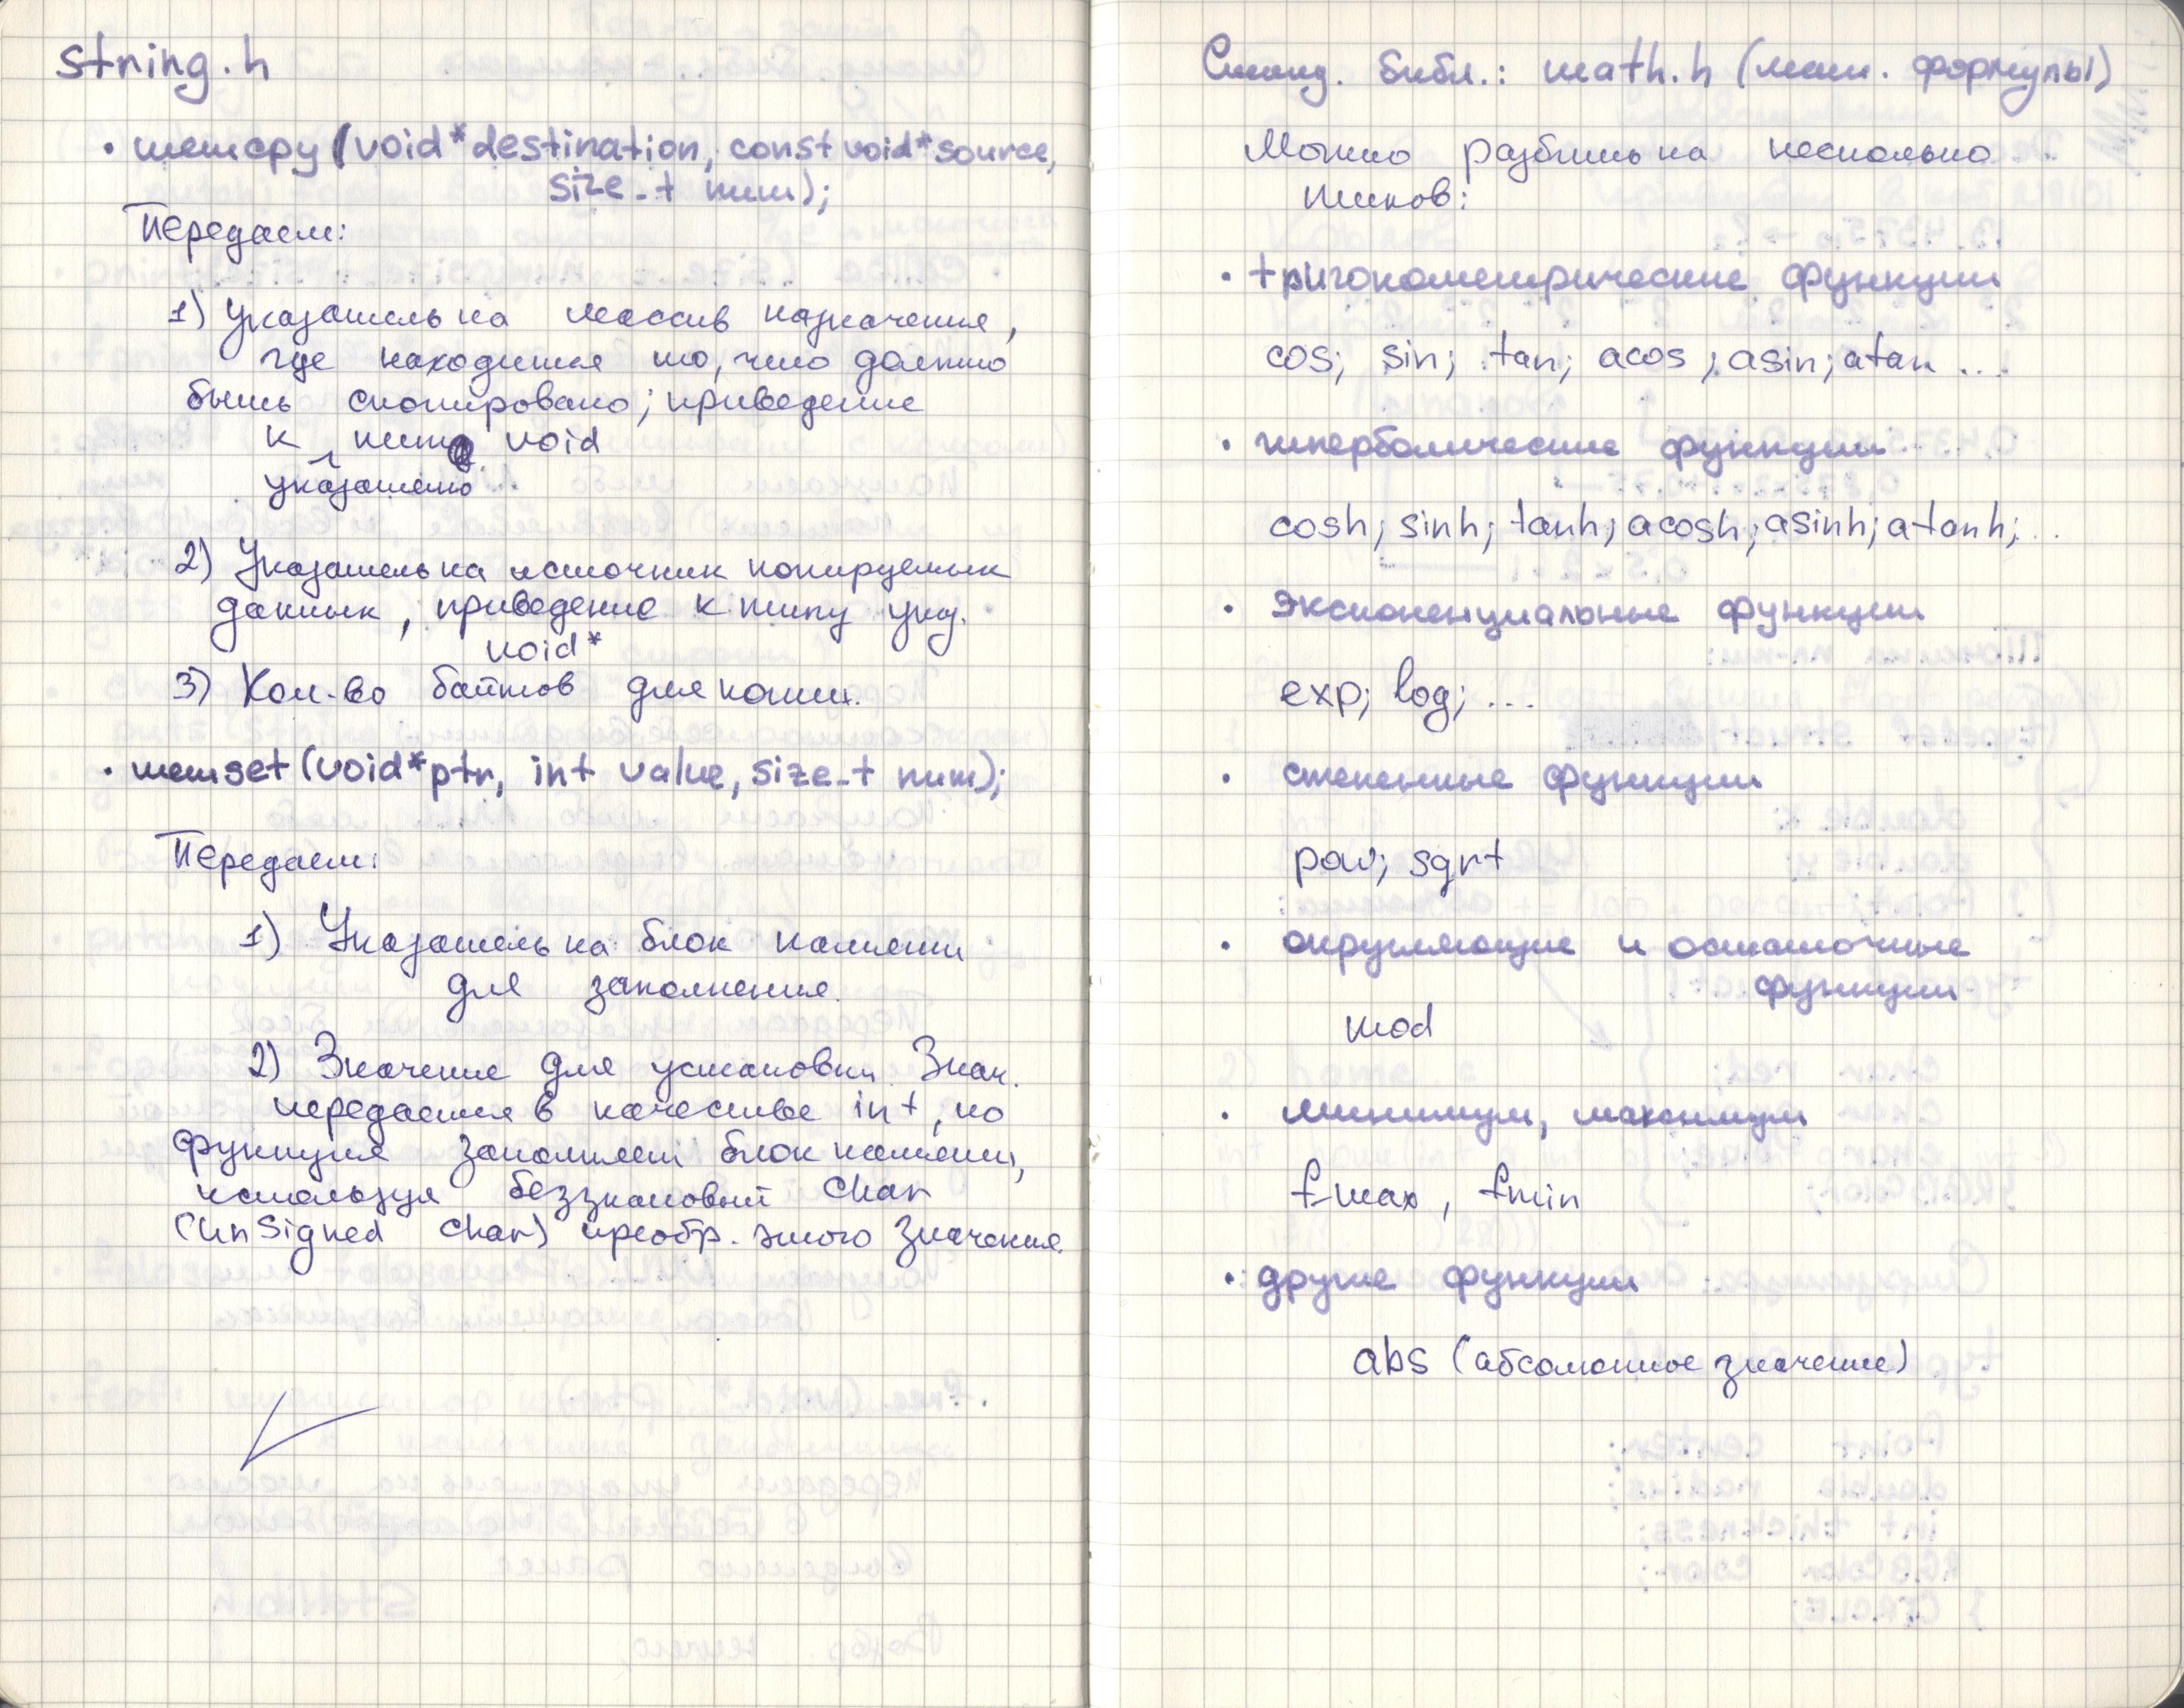 string.h
• memcpy (void* destination, const void* source,
size_t num);
Передаем:
1) Указатель на массив назначения,
где находится то, что должно
быть скопировано; приведение
к типу void
указателю
2) Указатель на источник копируемых
данных, приведение к типу указ.
void*
3) Кол-во байтов для копии.
• memset (void* ptr, int value, size_t num);
Передаем:
1) Указатель на блок памяти
для заполнения.
2) Значение для установки. Знач.
передается в качестве int, но
функция заполняет блок памяти,
используя беззнаковый char
(unsigned char) преобр. этого значения.
Станд. библ.: math.h (мат. формулы)
Можно разбить на несколько
типов:
• тригонометрические функции
cos; sin; tan; acos; asin; atan ...
• гиперболические функции
cosh; sinh; tanh; acosh; asinh; atanh; ...
• экспоненциальные функции
exp; log; ...
• степенные функции
pow; sqrt
• округляющие и остаточные
функции
mod
• минимум, максимум
fmax, fmin
• другие функции
abs (абсолютное значение)